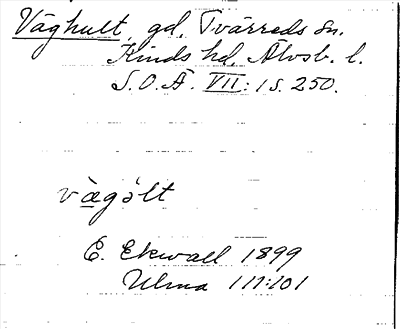 Våghult, gd, Tvärreds sn.
Kinds hd, Älvsb. l.
S.O.Ä. VII: 1 s. 250.
vægólt
E. Ekwall 1899
Ulma 111:201